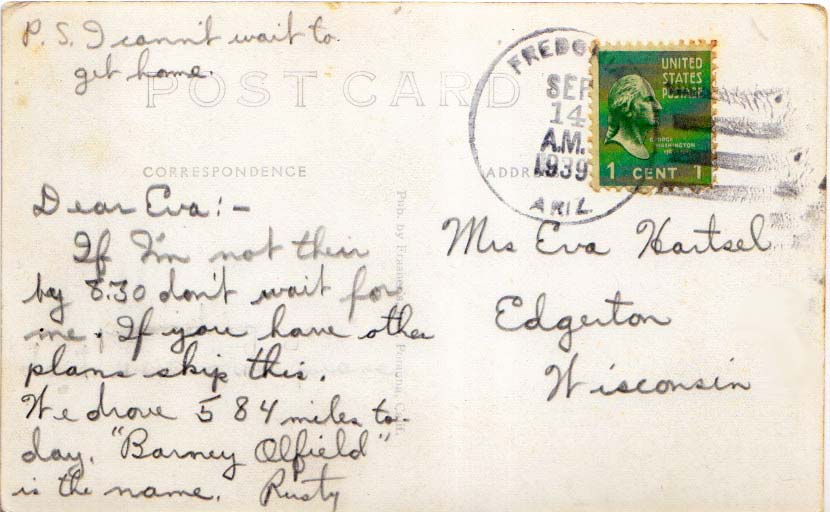 P.S. I cann't wait to
get home.
POST CARD
FREDO
SEP
14
A.M.
1939
ARIZ
UNITED
STATES
POSTAGE
GEORGE
WASHINGTON
1 CENT 1
CORRESPONDENCE
ADDR
Dear Eva:-
If I'm not their
by 8:30 don't wait for
me. If you have other
plans skip this.
We drove 584 miles to-
day. "Barney Olfield"
is the name. Rusty
Pub. by Pomona, Calif.
Mrs Eva Hartsel
Edgerton
Wisconsin